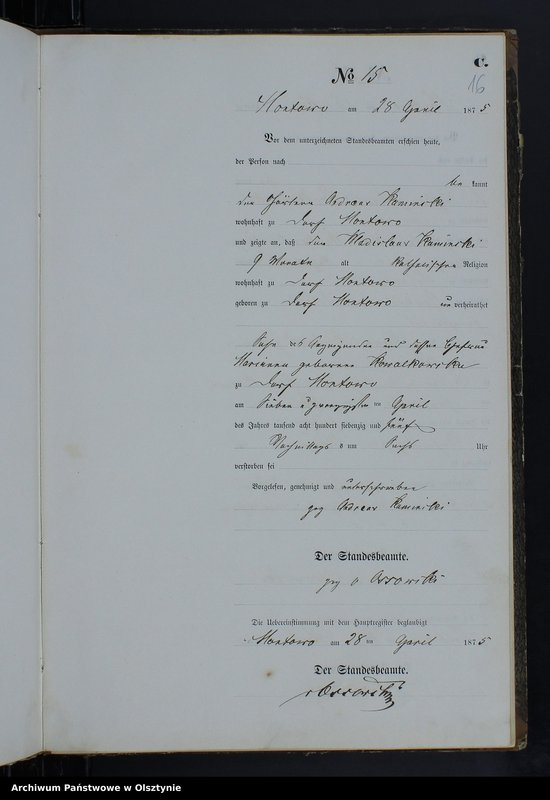 C.
No 15
16
Montowo am 28 April 1875
Vor dem unterzeichneten Standesbeamten erschien heute,
der Person nach
be kannt
der Andreas Kaminski
wohnhaft zu Dorf Montowo
und zeigte an, daß der Wladislaus Kaminski
9 Monate alt katholischer Religion
wohnhaft zu Dorf Montowo
geboren zu Dorf Montowo un verheirathet
Sohn des Anzeigenden und dessen Ehefrau
Marianna geborene Kowalkowska
zu Dorf Montowo
am Sieben u zwanzigsten April
des Jahres tausend acht hundert siebenzig und fünf
Nachmittags um Sechs Uhr
verstorben sei
Vorgelesen, genehmigt und unterschrieben
gez Andreas Kaminski
Der Standesbeamte.
gez v Ossowski
Die Uebereinstimmung mit dem Hauptregister beglaubigt
Montowo am 28 ten April 1875
Der Standesbeamte.
v Ossowski
Archiwum Państwowe w Olsztynie